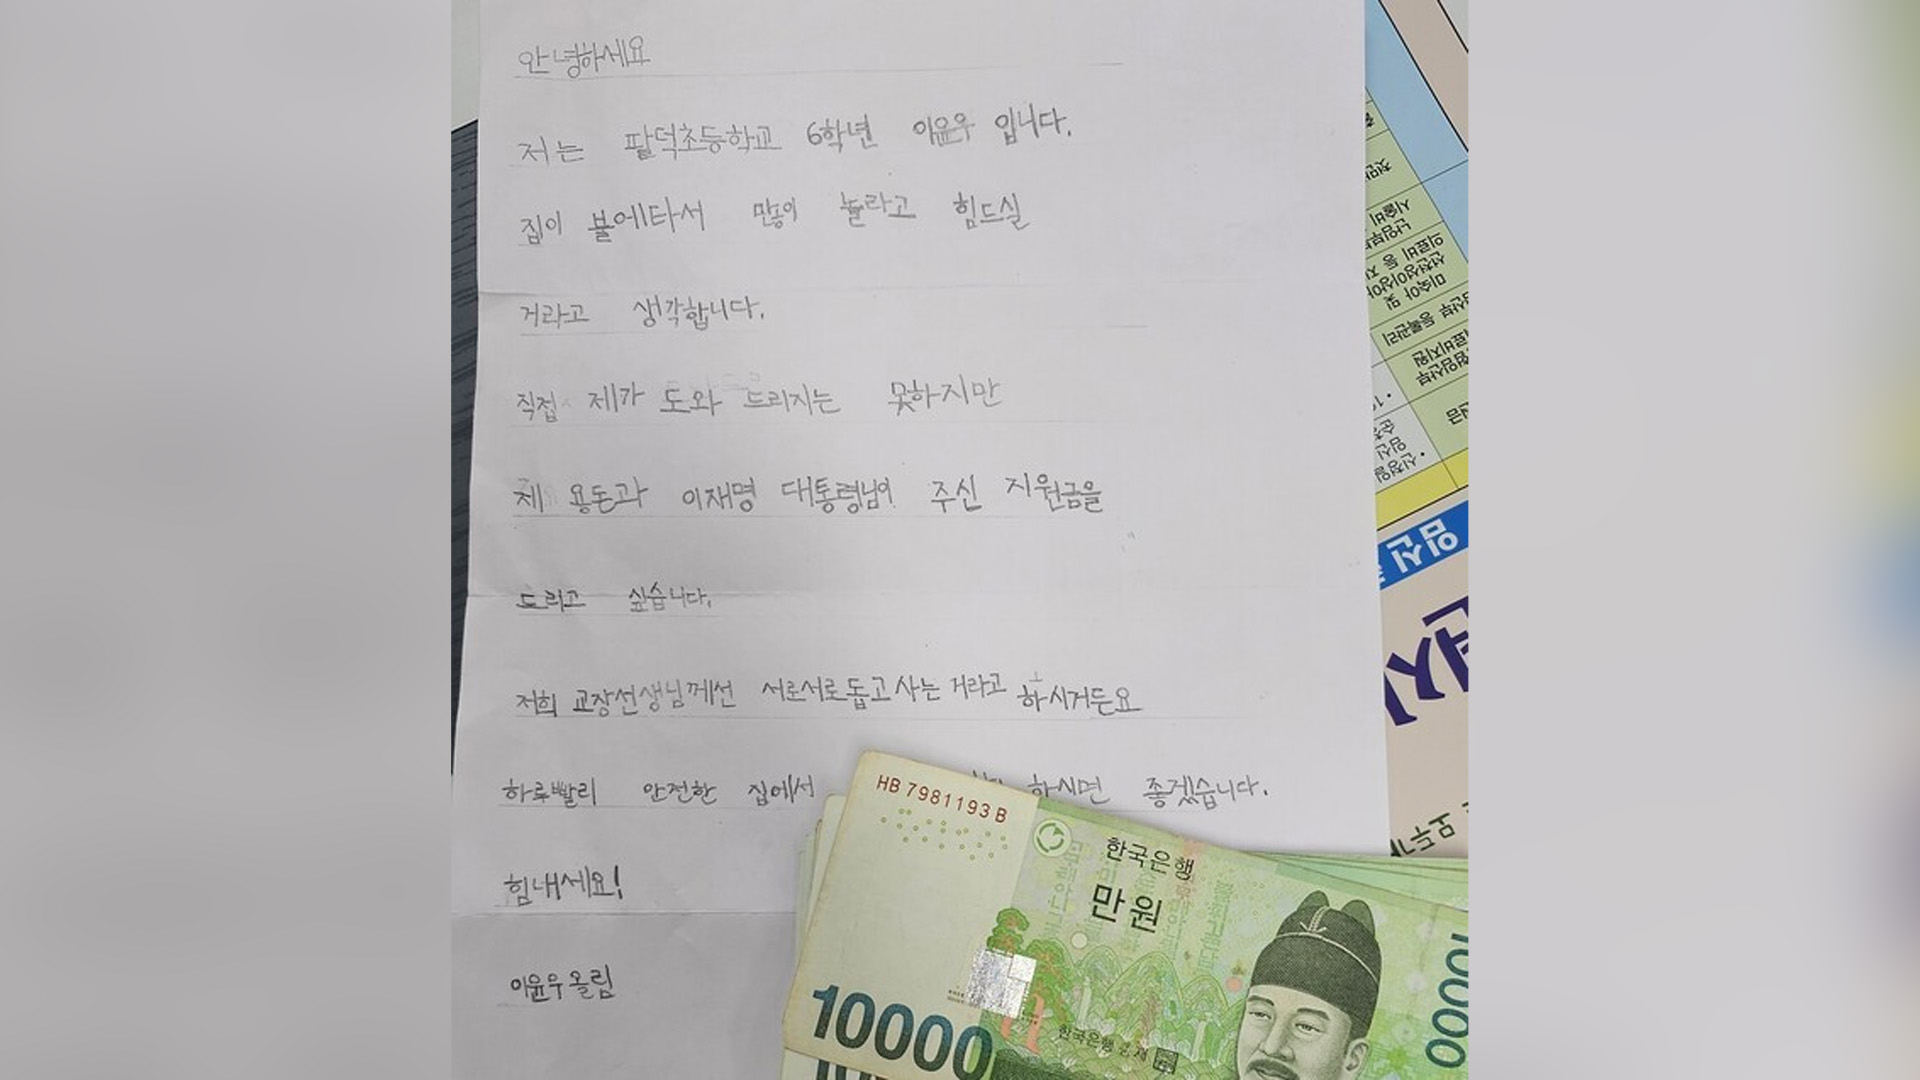 안녕하세요
저는 팔덕초등학교 6학년 이윤우 입니다.
집이 불에타서 많이 놀라고 힘드실
거라고 생각합니다.
직접 제가 도와 드리지는 못하지만
제 용돈과 이재명 대통령님이 주신 지원금을
드리고 싶습니다.
저희 교장선생님께선 서로서로돕고사는 거라고 하시거든요
하루빨리 안전한 집에서 하시면 좋겠습니다.
힘내세요!
이윤우올림
HB 7981193 B
한국은행
만원
10000
한국은행 총재
10000
미숙아 및
선천성이상아
의료비 등 지
등록관리
임신